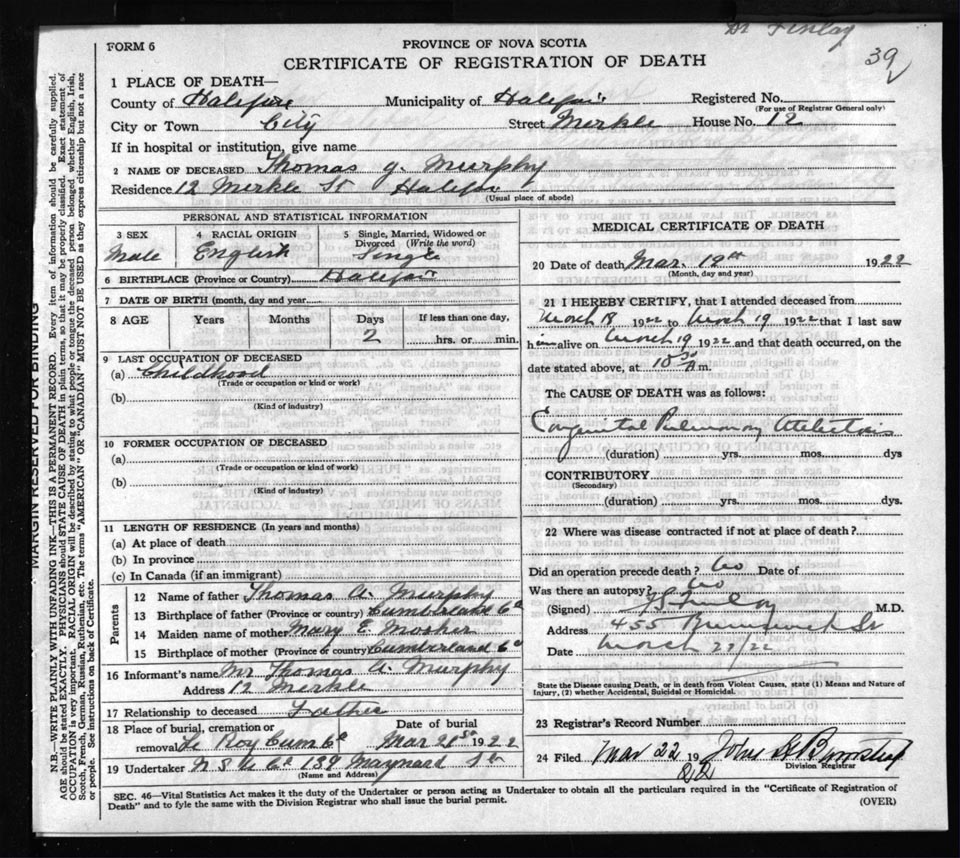 Dr Finlay
39
FORM 6
PROVINCE OF NOVA SCOTIA
CERTIFICATE OF REGISTRATION OF DEATH
MARGIN RESERVED FOR BINDING
N.B.—WRITE PLAINLY WITH UNFADING INK—THIS IS A PERMANENT RECORD. Every item of information should be carefully supplied.
AGE should be stated EXACTLY. PHYSICIANS should STATE CAUSE OF DEATH in plain terms, so that it may be properly classified. Exact statement of
OCCUPATION is very important. RACIAL ORIGIN will be described by stating to what people or tongue the deceased person belonged whether English, Irish,
Scotch, French, German, Russian, Ruthenian, etc. The terms "AMERICAN" OR "CANADIAN" MUST NOT BE USED as they express citizenship but not a race
or people. See instructions on back of Certificate.
1 PLACE OF DEATH—
County of Halifax Municipality of Halifax Registered No.
(For use of Registrar General only)
City or Town City Street Merkle House No. 12
If in hospital or institution, give name
2 NAME OF DECEASED Thomas J. Murphy
Residence 12 Merkle St Halifax
(Usual place of abode)
PERSONAL AND STATISTICAL INFORMATION
3 SEX Male
4 RACIAL ORIGIN English
5 Single, Married, Widowed or Divorced (Write the word) Single
6 BIRTHPLACE (Province or Country) Halifax
7 DATE OF BIRTH (month, day and year
8 AGE Years Months Days If less than one day,
2 hrs. or min.
9 LAST OCCUPATION OF DECEASED
(a) Childhood
(Trade or occupation or kind or work)
(b)
(Kind of industry)
10 FORMER OCCUPATION OF DECEASED
(a)
(Trade or occupation or kind of work)
(b)
(Kind of industry)
11 LENGTH OF RESIDENCE (In years and months)
(a) At place of death
(b) In province
(c) In Canada (if an immigrant)
Parents
12 Name of father Thomas A. Murphy
13 Birthplace of father (Province or country) Cumberland Co
14 Maiden name of mother Mary E. Mosher
15 Birthplace of mother (Province or country) Cumberland Co
16 Informant's name Mr Thomas A. Murphy
Address 12 Merkle
17 Relationship to deceased Father
18 Place of burial, cremation or Date of burial
removal Le Roy Cumb Co Mar 21st 1922
19 Undertaker N S U Co 139 Maynard St
(Name and Address)
MEDICAL CERTIFICATE OF DEATH
20 Date of death Mar. 19th 1922
(Month, day and year)
21 I HEREBY CERTIFY, that I attended deceased from
March 18 1922 to March 19 1922 that I last saw
him alive on March 19 1922 and that death occurred, on the
date stated above, at 10 30 A m.
The CAUSE OF DEATH was as follows:
Congenital Pulmonary Atelectasis
(duration) yrs. mos. dys
CONTRIBUTORY
(Secondary)
(duration) yrs. mos. dys.
22 Where was disease contracted if not at place of death?
Did an operation precede death? No Date of
Was there an autopsy? No
(Signed) Finlay M.D.
Address 455 Brunswick St
Date March 22/22
State the Disease causing Death, or in death from Violent Causes, state (1) Means and Nature of
Injury, (2) whether Accidental, Suicidal or Homicidal.
23 Registrar's Record Number
24 Filed Mar 22 1922 John
Division Registrar
SEC. 46—Vital Statistics Act makes it the duty of the Undertaker or person acting as Undertaker to obtain all the particulars required in the "Certificate of Registration of
Death" and to fyle the same with the Division Registrar who shall issue the burial permit.
(OVER)